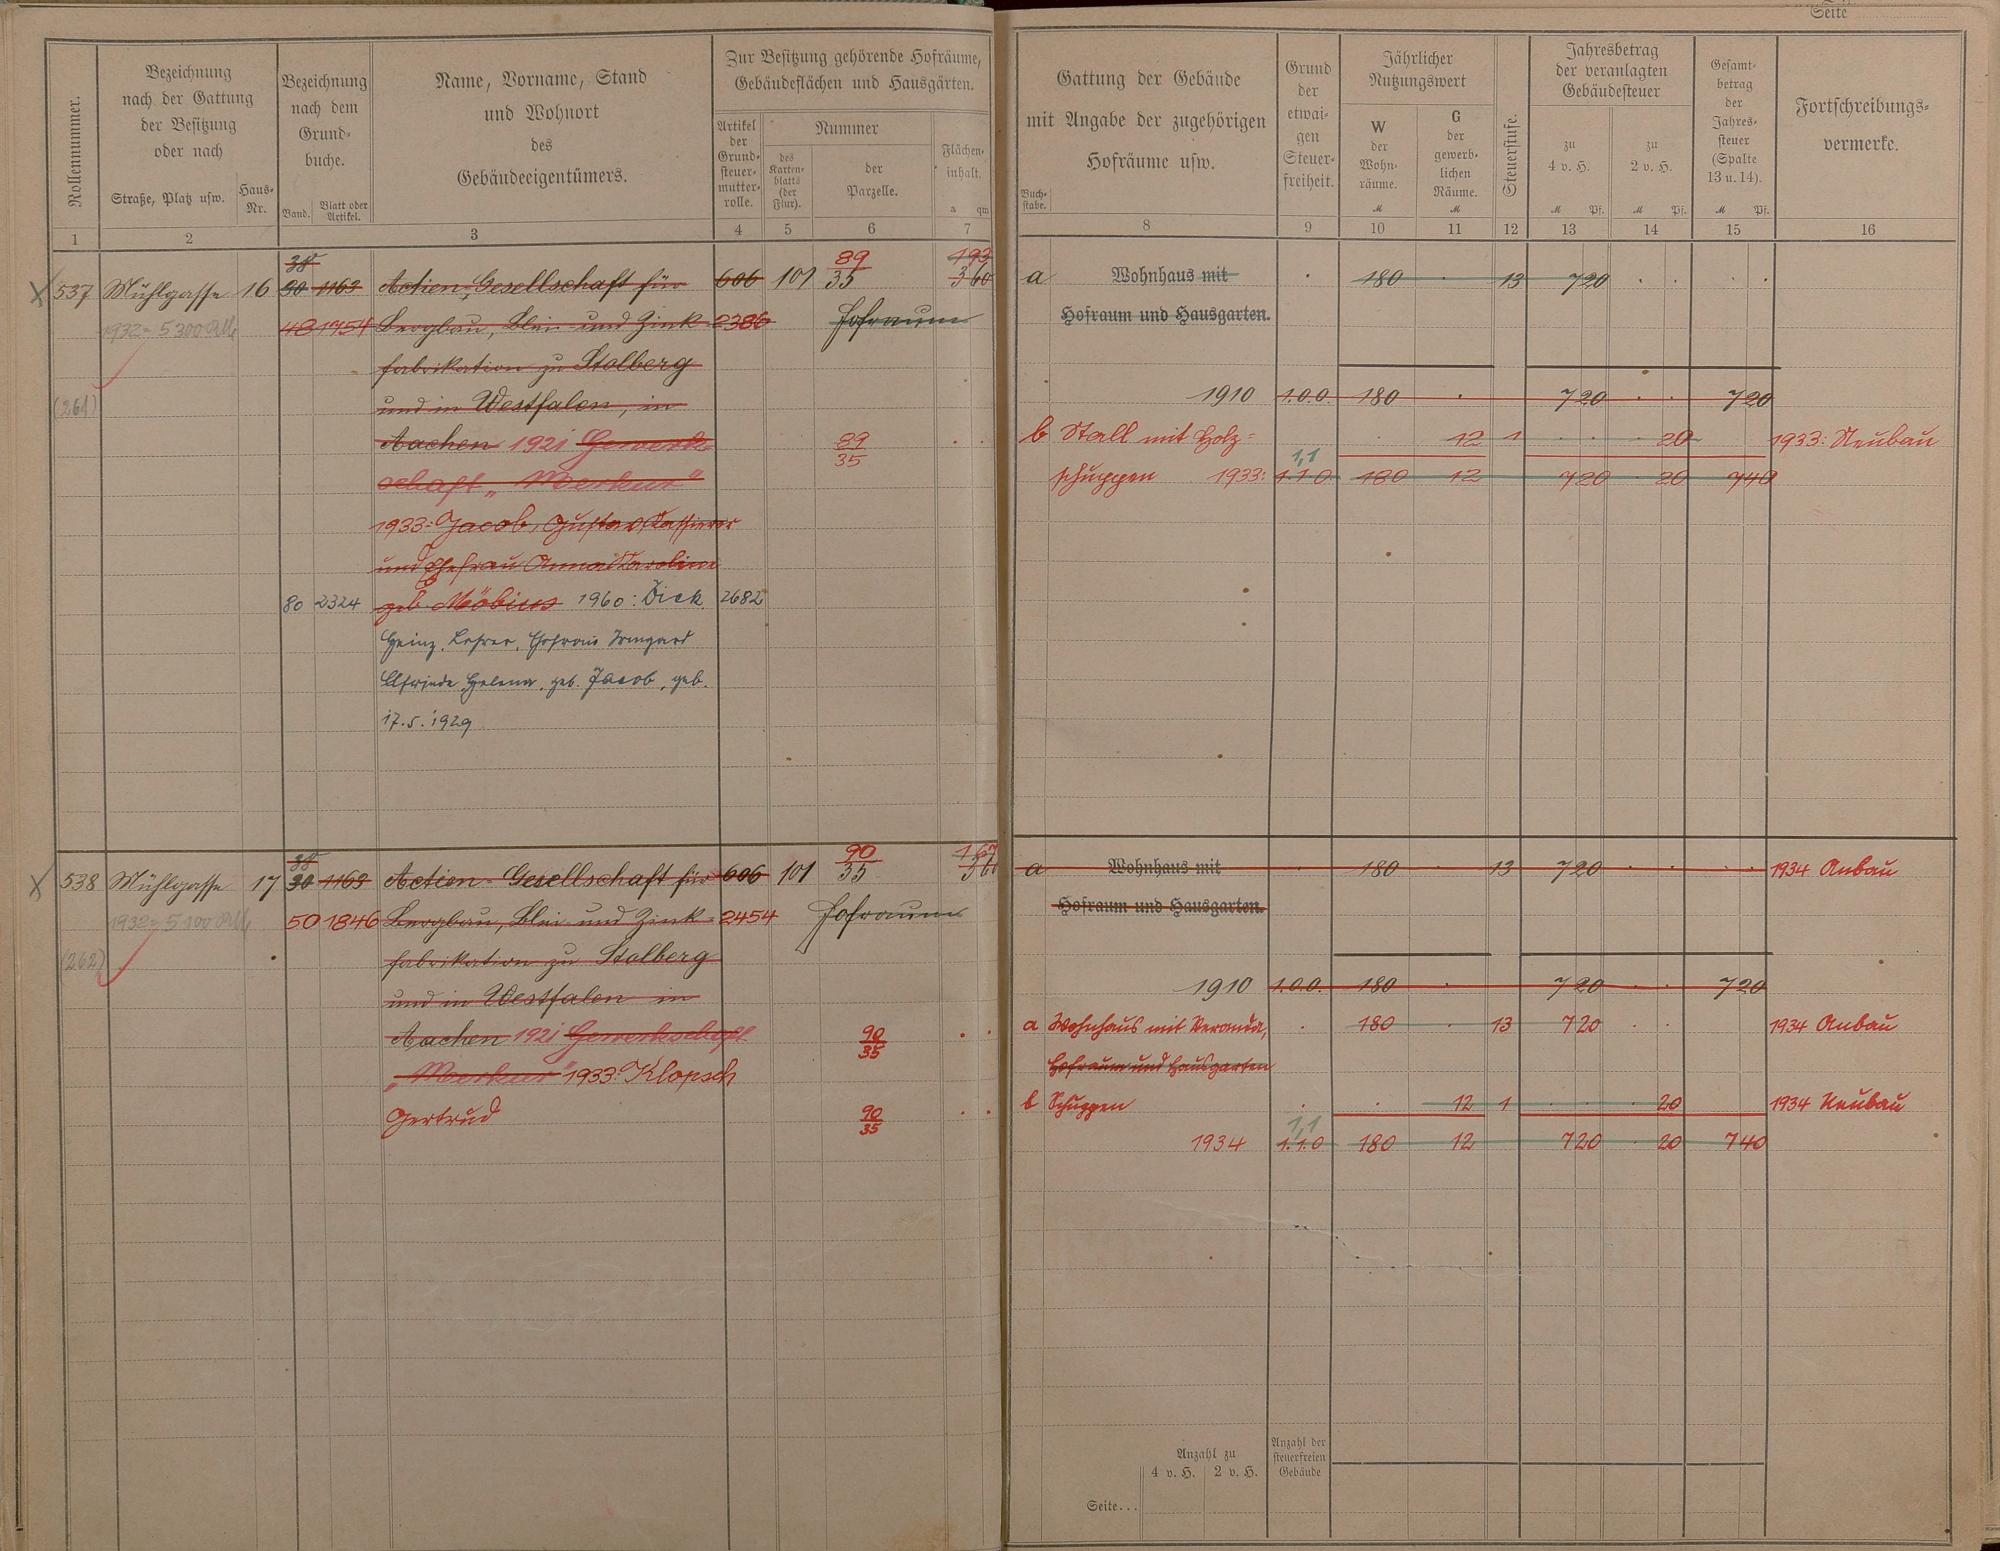 Seite
Rollennummer.
Bezeichnung
nach der Gattung
der Besitzung
oder nach
Straße, Platz usw.
Haus-
Nr.
Bezeichnung
nach dem
Grund-
buche.
Band.
Blatt oder
Artikel.
Name, Vorname, Stand
und Wohnort
des
Gebäudeeigentümers.
Zur Besitzung gehörende Hofräume,
Gebäudeflächen und Hausgärten.
Artikel
der
Grund-
steuer-
mutter-
rolle.
Nummer
des
Karten-
blatts
(der
Flur).
der
Parzelle.
Flächen-
inhalt.
a qm
1 2 3 4 5 6 7
Gattung der Gebäude
mit Angabe der zugehörigen
Hofräume usw.
Buch-
stabe.
Grund
der
etwai-
gen
Steuer-
freiheit.
Jährlicher
Nutzungswert
W
der
Wohn-
räume.
M
G
der
gewerb-
lichen
Räume.
M
Steuerstufe.
Jahresbetrag
der veranlagten
Gebäudesteuer
zu
4 v. H.
M Pf.
zu
2 v. H.
M Pf.
Gesamt-
betrag
der
Jahres-
steuer
(Spalte
13 u. 14).
M Pf.
Fortschreibungs-
vermerke.
8 9 10 11 12 13 14 15 16
38 89 193
537 Mühlgasse 16 30 1163 Actien-Gesellschaft für 606 101 35 3 60
1932 = 5300 RM 48 1754 Bergbau, Blei- und Zink- 2386 Hofraum
fabrikation zu Stolberg
(261) und in Westfalen, in
Aachen 1921 Gewerk- 89
schaft „Merkur" 35
1933: Jacob, Gustav, Kassierer
und Ehefrau Anna Karoline
80 2324 geb. Möbius 1960: Dick 2682
Heinz, Lehrer, Ehefrau Irmgard
Elfriede Helena, geb. Jacob, geb.
17.5.1929
a Wohnhaus mit 180 13 7 20
Hofraum und Hausgarten.
1910 1.0.0. 180 7 20 7 20
b Stall mit Holz- 12 1 20 1933: Neubau
1,1
schuppen 1933: 1.1.0. 180 12 7 20 20 7 40
38 90 167
538 Mühlgasse 17 30 1163 Actien-Gesellschaft für 606 101 35 3 60
1932 = 5100 RM 50 1846 Bergbau, Blei- und Zink- 2454 Hofraum
(262) fabrikation zu Stolberg
und in Westfalen in
Aachen 1921 Gewerkschaft 90
35
„Merkur" 1933: Klopsch
Gertrud 90
35
a Wohnhaus mit 180 13 7 20 1934 Anbau
Hofraum und Hausgarten.
1910 1.0.0. 180 7 20 7 20
a Wohnhaus mit Veranda, 180 13 7 20 1934 Anbau
Hofraum und Hausgarten
b Schuppen 12 1 20 1934 Neubau
1,1
1934 1.1.0 180 12 7 20 20 7 40
Anzahl zu
4 v. H. 2 v. H.
Anzahl der
steuerfreien
Gebäude
Seite...